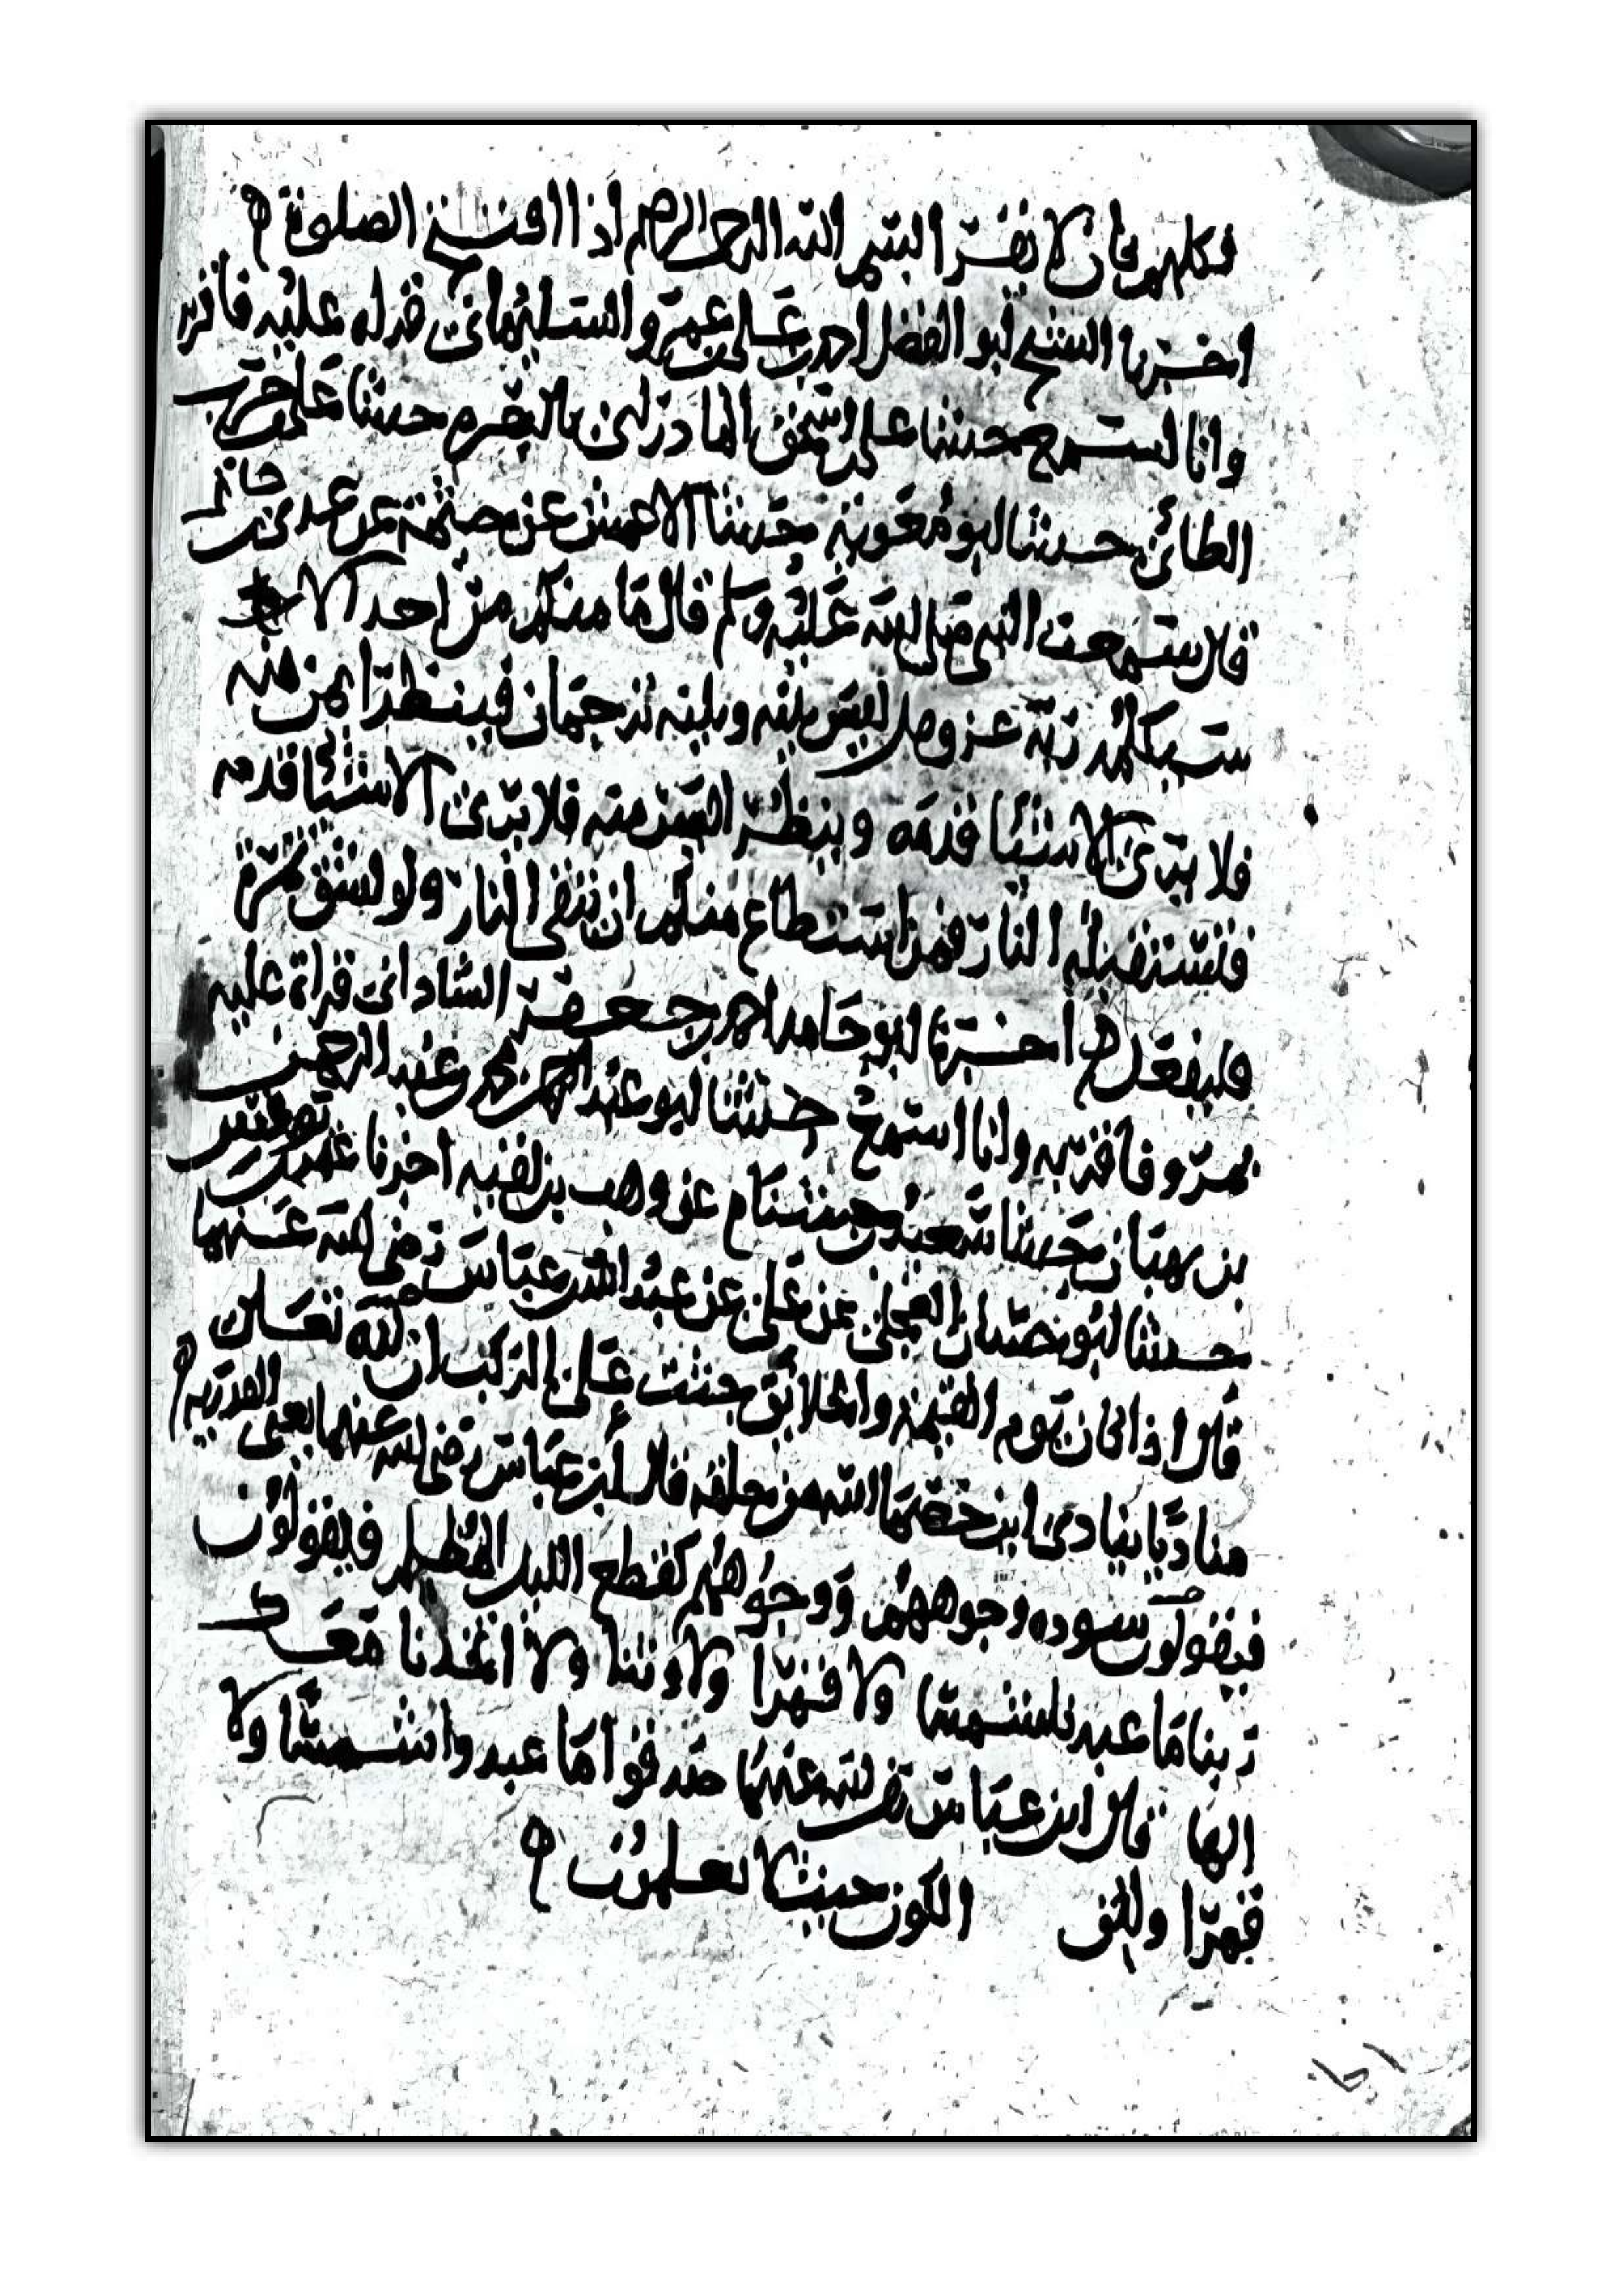 فكلهم كان لا يقرا بسم الله الرحمن الرحيم اذا افتتح الصلوة
اخبرنا الشيخ ابو الفضل احمد بن علي بن عمرو السليماني قراه عليه فاقر به
وانا استمع حدثنا علي بن اسحق المادراني بالبصره حدثنا علي بن حرب
الطائي حدثنا ابو معوية حدثنا الاعمش عن خيثمة عن عدي بن حاتم
قال سمعت النبي صلى الله عليه وسلم قال ما منكم من احد الا
سيكلمه ربه عز وجل ليس بينه وبينه ترجمان فينظر ايمن منه
فلا يرى الا شيئا قدمه وينظر ايسر منه فلا يرى الا شيئا قدمه
فتستقبله النار فمن استطاع منكم ان يتقي النار ولو بشق تمرة
فليفعل اخبرنا ابو حامد احمد بن جعفر قراة عليه
بمرو فاقر به وانا استمع حدثنا ابو عبد الرحمن محمد بن عبد الرحمن
بن حدثنا سعيد بن عن وهب بن بقيه اخبرنا
حدثنا ابو العجلي عن علي عن عبد الله بن عباس رضي الله عنهما
قال اذا كان يوم القيمة والخلائق جثت على الركب ان لله تعالى
مناديا ينادي اين خصما الله من خلقه قال ابن عباس رضي الله عنهما يعني القدرية
فيقولون سوده وجوههم ووجوههم كقطع الليل المظلم فيقولون
ربنا ما عبدنا شمسا ولا قمرا ولا وثنا ولا اتخذنا معك
الها قال ابن عباس رضي الله عنهما صدقوا ما عبدوا شمسا ولا
قمرا ولكن الكون حيث لا يعلمون